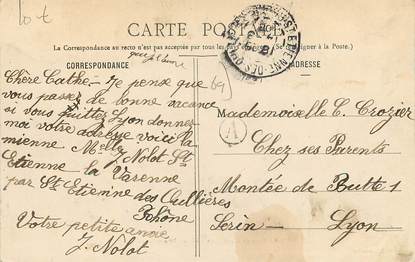 10 €
CARTE POSTALE
La Correspondance au recto n'est pas acceptée par tous les pays étrangers (Se renseigner à la Poste.)
CORRESPONDANCE
Chère Cathe - Je pense que
vous passez de bonne vacance
si vous quitter Lyon donner
moi votre adresse voici la
mienne Melle J. Nolot St
Etienne la Varenne
par St Etienne des Oullières
Rhône
Votre petite amie
J. Nolot
69
ST-ETIENNE-DES-OULLIÈRES
A
Mademoiselle C. Crozier
Chez ses Parents
Montée de Butte 1
Serin - Lyon